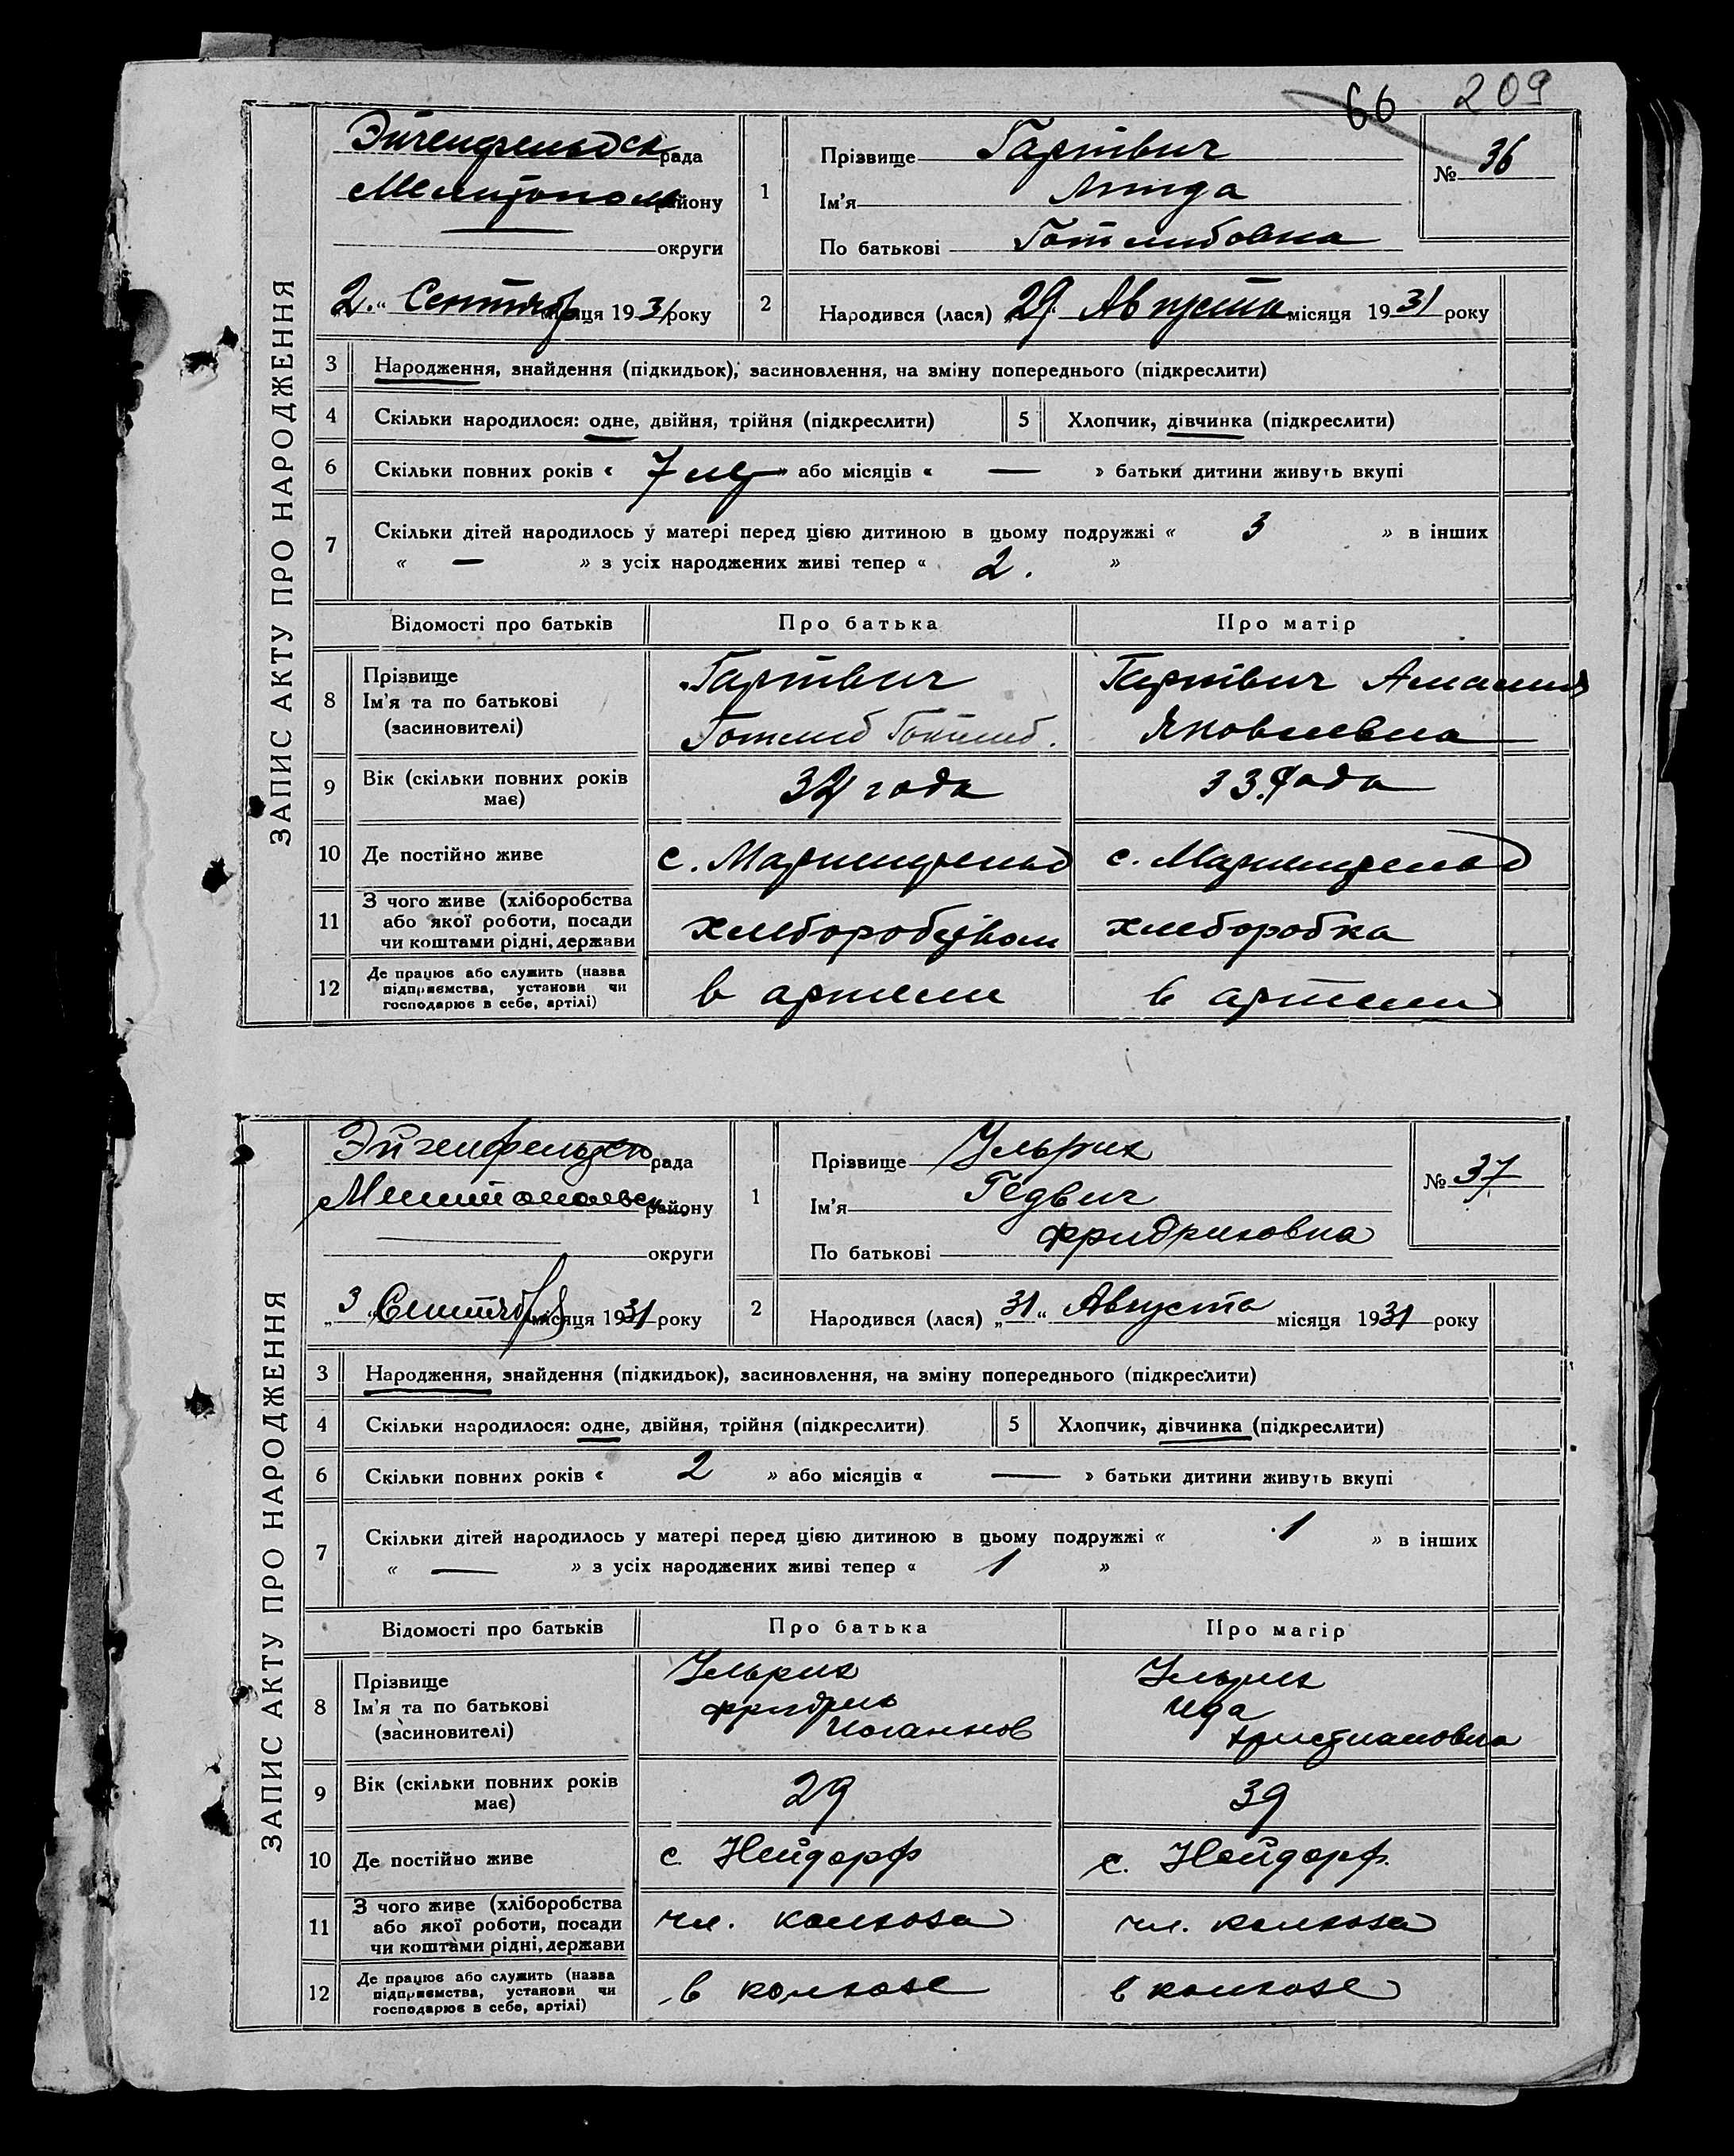 66 209
ЗАПИС АКТУ ПРО НАРОДЖЕННЯ
Эйгенфельдск рада
Мелитополь району
округи
2 " Сентябр місяця 1931 року
1
Прізвище Гартвич
Ім'я Линда
По батькові Готлибовна
№ 36
2
Народився (лася) "29" Августа місяця 1931 року
3 Народження, знайдення (підкидьок), засиновлення, на зміну попереднього (підкреслити)
4 Скільки народилося: одне, двійня, трійня (підкреслити) 5 Хлопчик, дівчинка (підкреслити)
6 Скільки повних років « 7 » або місяців « — » батьки дитини живуть вкупі
7 Скільки дітей народилось у матері перед цією дитиною в цьому подружжі « 3 » в інших
« — » з усіх народжених живі тепер « 2. »
Відомості про батьків Про батька Про матір
8 Прізвище
Ім'я та по батькові
(засиновителі)
Гартвич
Готлиб Готлиб.
Гартвич Амалия
Яковлевна
9 Вік (скільки повних років
має)
32 года 33 года
10 Де постійно живе с. Мариенфельд с. Мариенфельд
11 З чого живе (хліборобства
або якої роботи, посади
чи коштами рідні, держави
хлеборобством хлеборобка
12 Де працює або служить (назва
підприємства, установи чи
господарює в себе, артілі)
в артели в артели
ЗАПИС АКТУ ПРО НАРОДЖЕННЯ
Эйгенфельдск рада
Мелитопольск району
округи
"3" Сентябр місяця 1931 року
1
Прізвище Ульрих
Ім'я Гедвиг
По батькові Фридриховна
№ 37
2
Народився (лася) "31" Августа місяця 1931 року
3 Народження, знайдення (підкидьок), засиновлення, на зміну попереднього (підкреслити)
4 Скільки народилося: одне, двійня, трійня (підкреслити) 5 Хлопчик, дівчинка (підкреслити)
6 Скільки повних років « 2 » або місяців « — » батьки дитини живуть вкупі
7 Скільки дітей народилось у матері перед цією дитиною в цьому подружжі « 1 » в інших
« — » з усіх народжених живі тепер « 1 »
Відомості про батьків Про батька Про матір
8 Прізвище
Ім'я та по батькові
(засиновителі)
Ульрих
Фридрих
Иоганнов
Ульрих
Ида
Христиановна
9 Вік (скільки повних років
має)
29 39
10 Де постійно живе с. Нейдорф с. Нейдорф.
11 З чого живе (хліборобства
або якої роботи, посади
чи коштами рідні, держави
чл. колхоза чл. колхоза
12 Де працює або служить (назва
підприємства, установи чи
господарює в себе, артілі)
в колхозе в колхозе